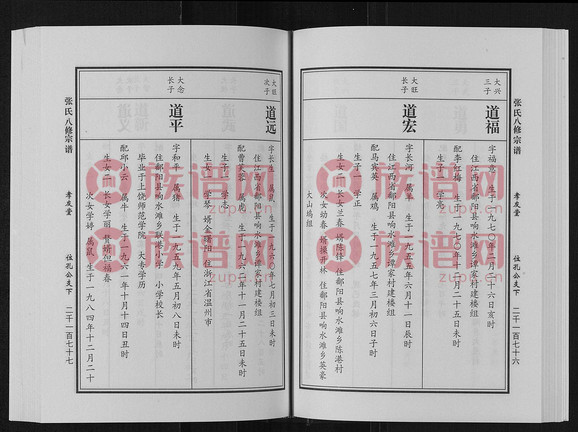 张氏八修宗谱
孝友堂
位孔公支下
二千一百七十六
大兴
三子
道福
字福意
生于一九七〇年二月二十六日亥时
住江西省鄱阳县响水滩乡谭家村建楼组
配李红梅
生于一九七一年十二月二十五日未时
生子一
学亮
大旺
长子
道宏
字长河
属羊
生于一九五五年十月十一日辰时
住江西省鄱阳县响水滩乡谭家村建楼组
配马宾英
属鸡
生于一九五七年三月初六日子时
生子一
学正
生女二
长女兰春
婿陈锋
住鄱阳县响水滩乡陈港村
次女幼春
婿操开林
住鄱阳县响水滩乡英豪
大山坞组
大旺
次子
道远
字长生
属鼠
生于一九六〇年七月初三日未时
住江西省鄱阳县响水滩乡谭家村建楼组
配曹爱蓉
属虎
生于一九六二年十一月二十五日未时
生子一
学志
生女一
学琴
婿金曙阳
住浙江省温州市
大念
长子
道平
字和平
属猪
生于一九五九年五月初八日未时
住鄱阳县响水滩乡联港小学
小学校长
毕业于上饶师范学院
大专学历
配邱小云
属牛
生于一九六一年十月十四日丑时
生女二
长女学丽
赘婿但福春
次女学婷
属鼠
生于一九八四年十二月二十
张氏八修宗谱
孝友堂
位孔公支下
二千一百七十七
族谱网
zupu.cn